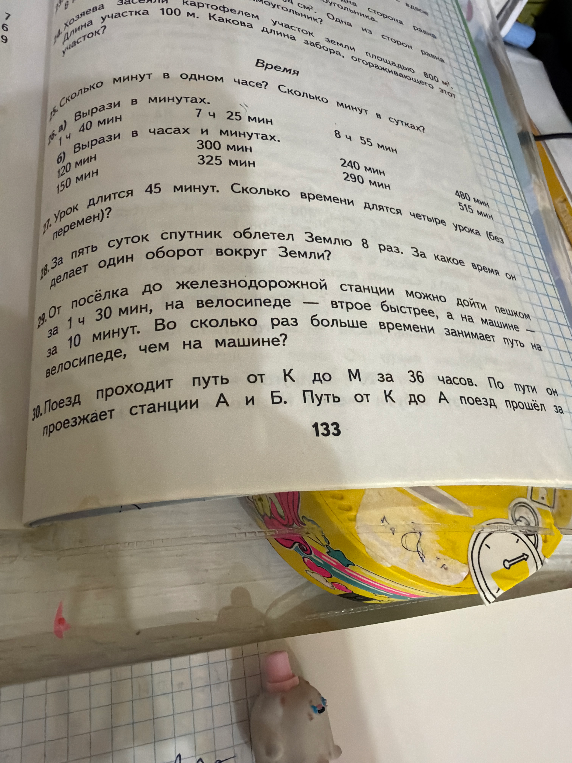 7
6
9
см². Одна из сторон равна
Хозяева засеяли картофелем участок земли площадью 800 м².
Длина участка 100 м. Какова длина забора, огораживающего этот
участок?
Время
25. Сколько минут в одном часе? Сколько минут в сутках?
26. а) Вырази в минутах.
1 ч 40 мин 7 ч 25 мин 8 ч 55 мин
б) Вырази в часах и минутах.
120 мин 300 мин 240 мин 480 мин
150 мин 325 мин 290 мин 515 мин
27. Урок длится 45 минут. Сколько времени длятся четыре урока (без
перемен)?
28. За пять суток спутник облетел Землю 8 раз. За какое время он
делает один оборот вокруг Земли?
29. От посёлка до железнодорожной станции можно дойти пешком
за 1 ч 30 мин, на велосипеде — втрое быстрее, а на машине —
за 10 минут. Во сколько раз больше времени занимает путь на
велосипеде, чем на машине?
30. Поезд проходит путь от К до М за 36 часов. По пути он
проезжает станции А и Б. Путь от К до А поезд прошёл за
133